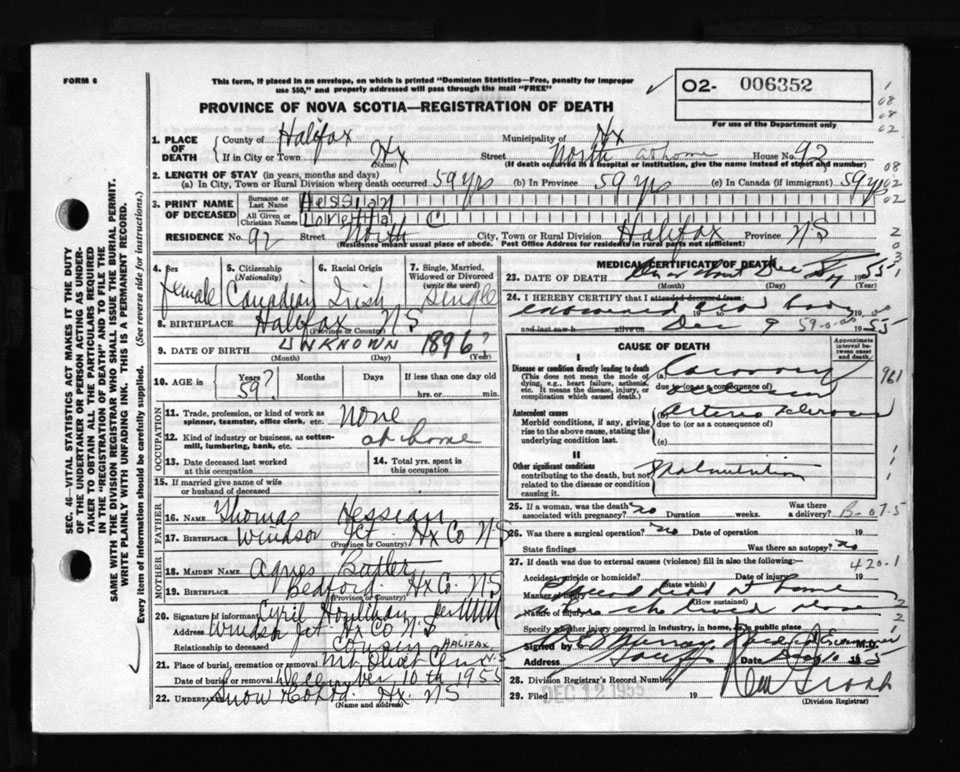 FORM 6
This form, if placed in an envelope, on which is printed "Dominion Statistics—Free, penalty for improper
use $50," and properly addressed will pass through the mail "FREE"
02- 006352
For use of the Department only
PROVINCE OF NOVA SCOTIA—REGISTRATION OF DEATH
SEC. 46 - VITAL STATISTICS ACT MAKES IT THE DUTY
OF THE UNDERTAKER OR PERSON ACTING AS UNDER-
TAKER TO OBTAIN ALL THE PARTICULARS REQUIRED
IN THE "REGISTRATION OF DEATH" AND TO FILE THE
SAME WITH THE DIVISION REGISTRAR WHO SHALL ISSUE THE BURIAL PERMIT.
WRITE PLAINLY WITH UNFADING INK. THIS IS A PERMANENT RECORD.
Every item of information should be carefully supplied. (See reverse side for instructions.)
1. PLACE OF DEATH County of Halifax Municipality of Hx
If in City or Town Hx (Name) Street North at home House No. 92
(If death occurred in a hospital or institution, give the name instead of street and number)
2. LENGTH OF STAY (in years, months and days)
(a) In City, Town or Rural Division where death occurred 59 yrs (b) In Province 59 yrs (c) In Canada (if immigrant) 59 yrs
3. PRINT NAME OF DECEASED Surname or Last Name Hessian
All Given or Christian Names Loretta C
RESIDENCE No. 92 Street North City, Town or Rural Division Halifax Province NS
(Residence means usual place of abode. Post Office Address for residents in rural parts not sufficient)
4. Sex Female
5. Citizenship (Nationality) Canadian
6. Racial Origin Irish
7. Single, Married, Widowed or Divorced (write the word) Single
8. BIRTHPLACE Halifax NS
(Province or Country)
9. DATE OF BIRTH UNKNOWN 1896?
(Month) (Day) (Year)
10. AGE in Years? 59? Months Days If less than one day old
hrs. or min.
OCCUPATION
11. Trade, profession, or kind of work as
spinner, teamster, office clerk, etc. none
12. Kind of industry or business, as cotton-
mill, lumbering, bank, etc. at home
13. Date deceased last worked
at this occupation
14. Total yrs. spent in
this occupation
15. If married give name of wife
or husband of deceased
FATHER
16. NAME Thomas Hessian
17. BIRTHPLACE Windsor Jct. Hx Co NS
(Province or Country)
MOTHER
18. MAIDEN NAME Agnes Butler
19. BIRTHPLACE Bedford. Hx Co. NS
(Province or Country)
20. Signature of informant Cyril Houlihan per
Address Windsor Jct. Hx Co NS
Relationship to deceased Cousin
21. Place of burial, cremation or removal Mt Olivet Cem HALIFAX N.S
Date of burial or removal December 10th 1955
22. Undertaker Snow Co Ltd. Hx. NS
(Name and address)
MEDICAL CERTIFICATE OF DEATH
23. DATE OF DEATH On or about Dec 1955
(Month) (Day) (Year)
24. I HEREBY CERTIFY that I attended deceased from
19 to 19
and last saw h alive on Dec 9 1955
CAUSE OF DEATH
Approximate
interval be-
tween onset
and death
I
Disease or condition directly leading to death
(This does not mean the mode of
dying, e.g., heart failure, asthenia,
etc. It means the disease, injury, or
complication which caused death.)
(a) Coronary
due to (or as a consequence of)
Antecedent causes
Morbid conditions, if any, giving
rise to the above cause, stating the
underlying condition last.
(b) Arterio Sclerosis
due to (or as a consequence of)
(c)
II
Other significant conditions
contributing to the death, but not
related to the disease or condition
causing it.
Malnutrition
25. If a woman, was the death
associated with pregnancy? no Duration weeks. Was there
a delivery?
26. Was there a surgical operation? no Date of operation 19
State findings Was there an autopsy? no
27. If death was due to external causes (violence) fill in also the following:
420.1
Accident, suicide or homicide? (State which) Date of injury 19
Manner of injury found dead at home
(How sustained)
Nature of injury where she lived alone
Specify whether injury occurred in industry, in home, or in public place
Signed by Murray Medical Examiner M.D.
Address Date Dec 10 1955
28. Division Registrar's Record Number
29. Filed DEC 12 1955 19
(Division Registrar)